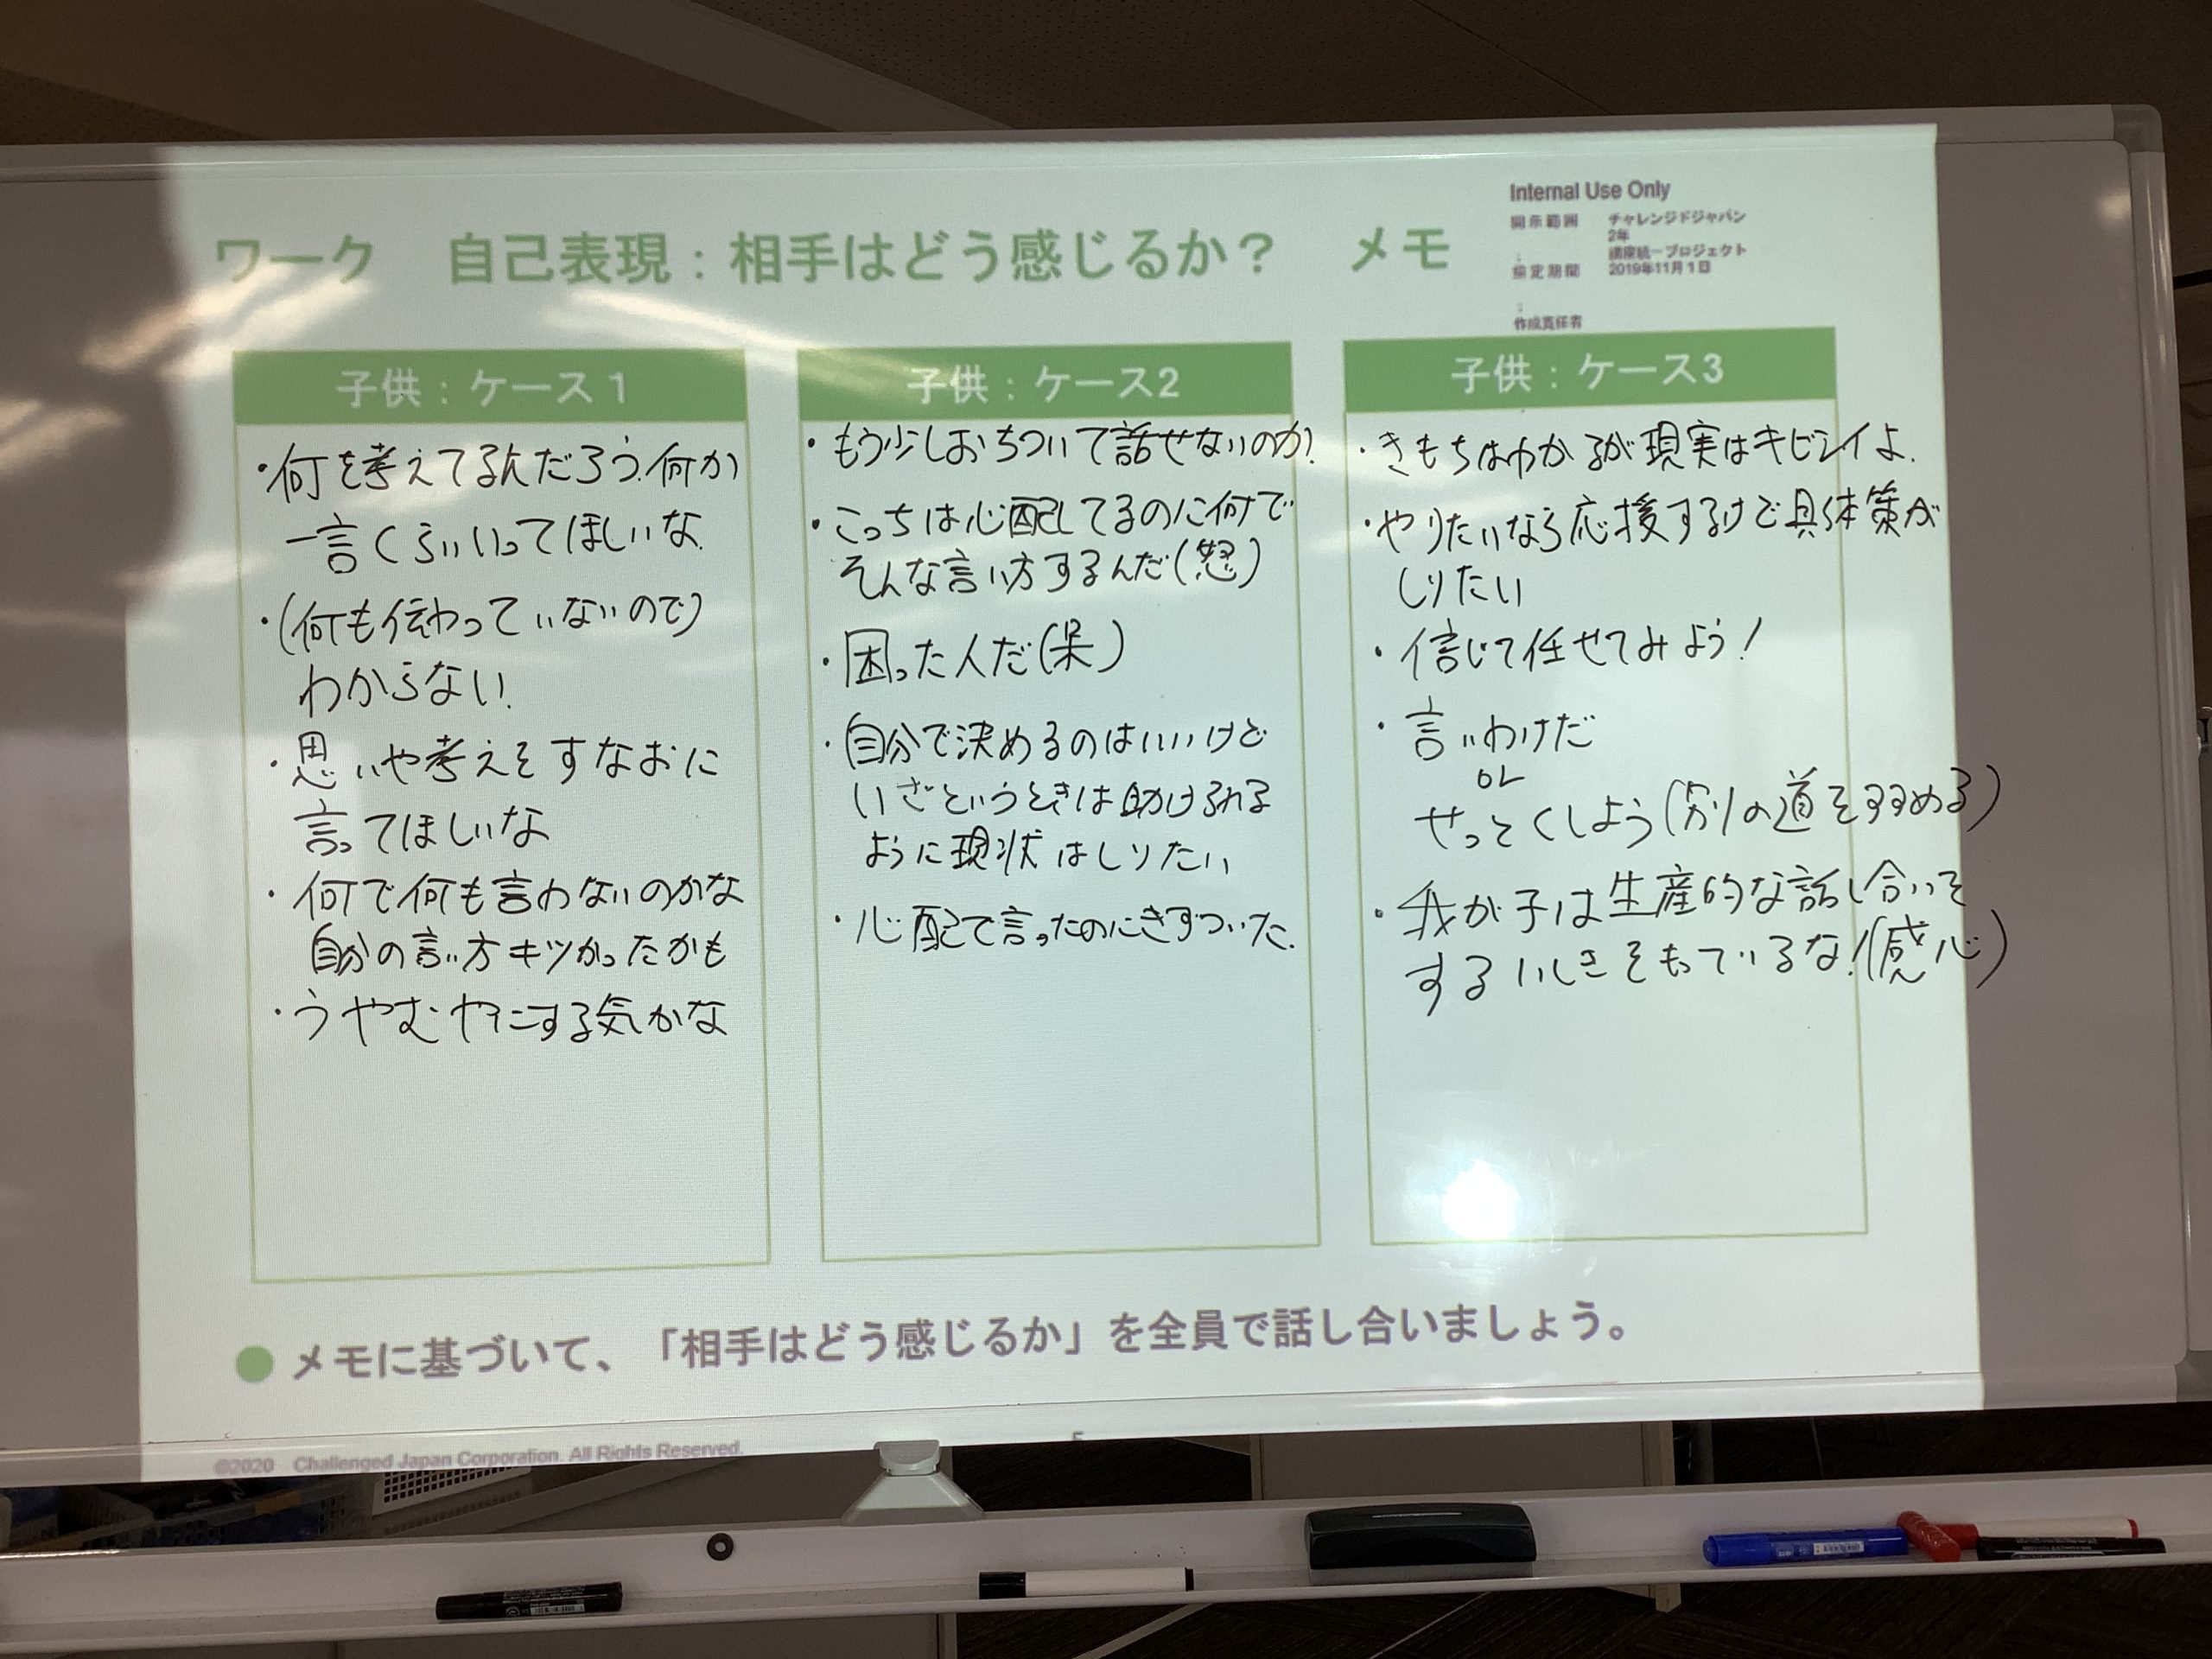 Internal Use Only
開示範囲 チャレンジドジャパン
2年
:
講座統一プロジェクト
策定期間 2019年11月1日
:
作成責任者
ワーク 自己表現：相手はどう感じるか？ メモ
子供：ケース1
・何を考えてるんだろう.何か
一言くらいいってほしいな.
・(何も伝わっていないので)
わからない.
・思いや考えをすなおに
言ってほしいな
・何で何も言わないのかな
自分の言い方キツかったかも
・うやむやにする気かな
子供：ケース2
・もう少しおちついて話せないのか?
・こっちは心配してるのに何で
そんな言い方するんだ(怒)
・困った人だ(呆)
・自分で決めるのはいいけど
いざというときは助けられる
ように現状はしりたい
・心配で言ったのにきずついた.
子供：ケース3
・きもちはわかるが現実はキビシイよ.
・やりたいなら応援するけど具体策が
しりたい
・信じて任せてみよう!
・言いわけだ
or
せっとくしよう(別の道をすすめる)
・我が子は生産的な話し合いを
するいしきをもっているな!(感心)
● メモに基づいて、「相手はどう感じるか」を全員で話し合いましょう。
©2020 Challenged Japan Corporation. All Rights Reserved.